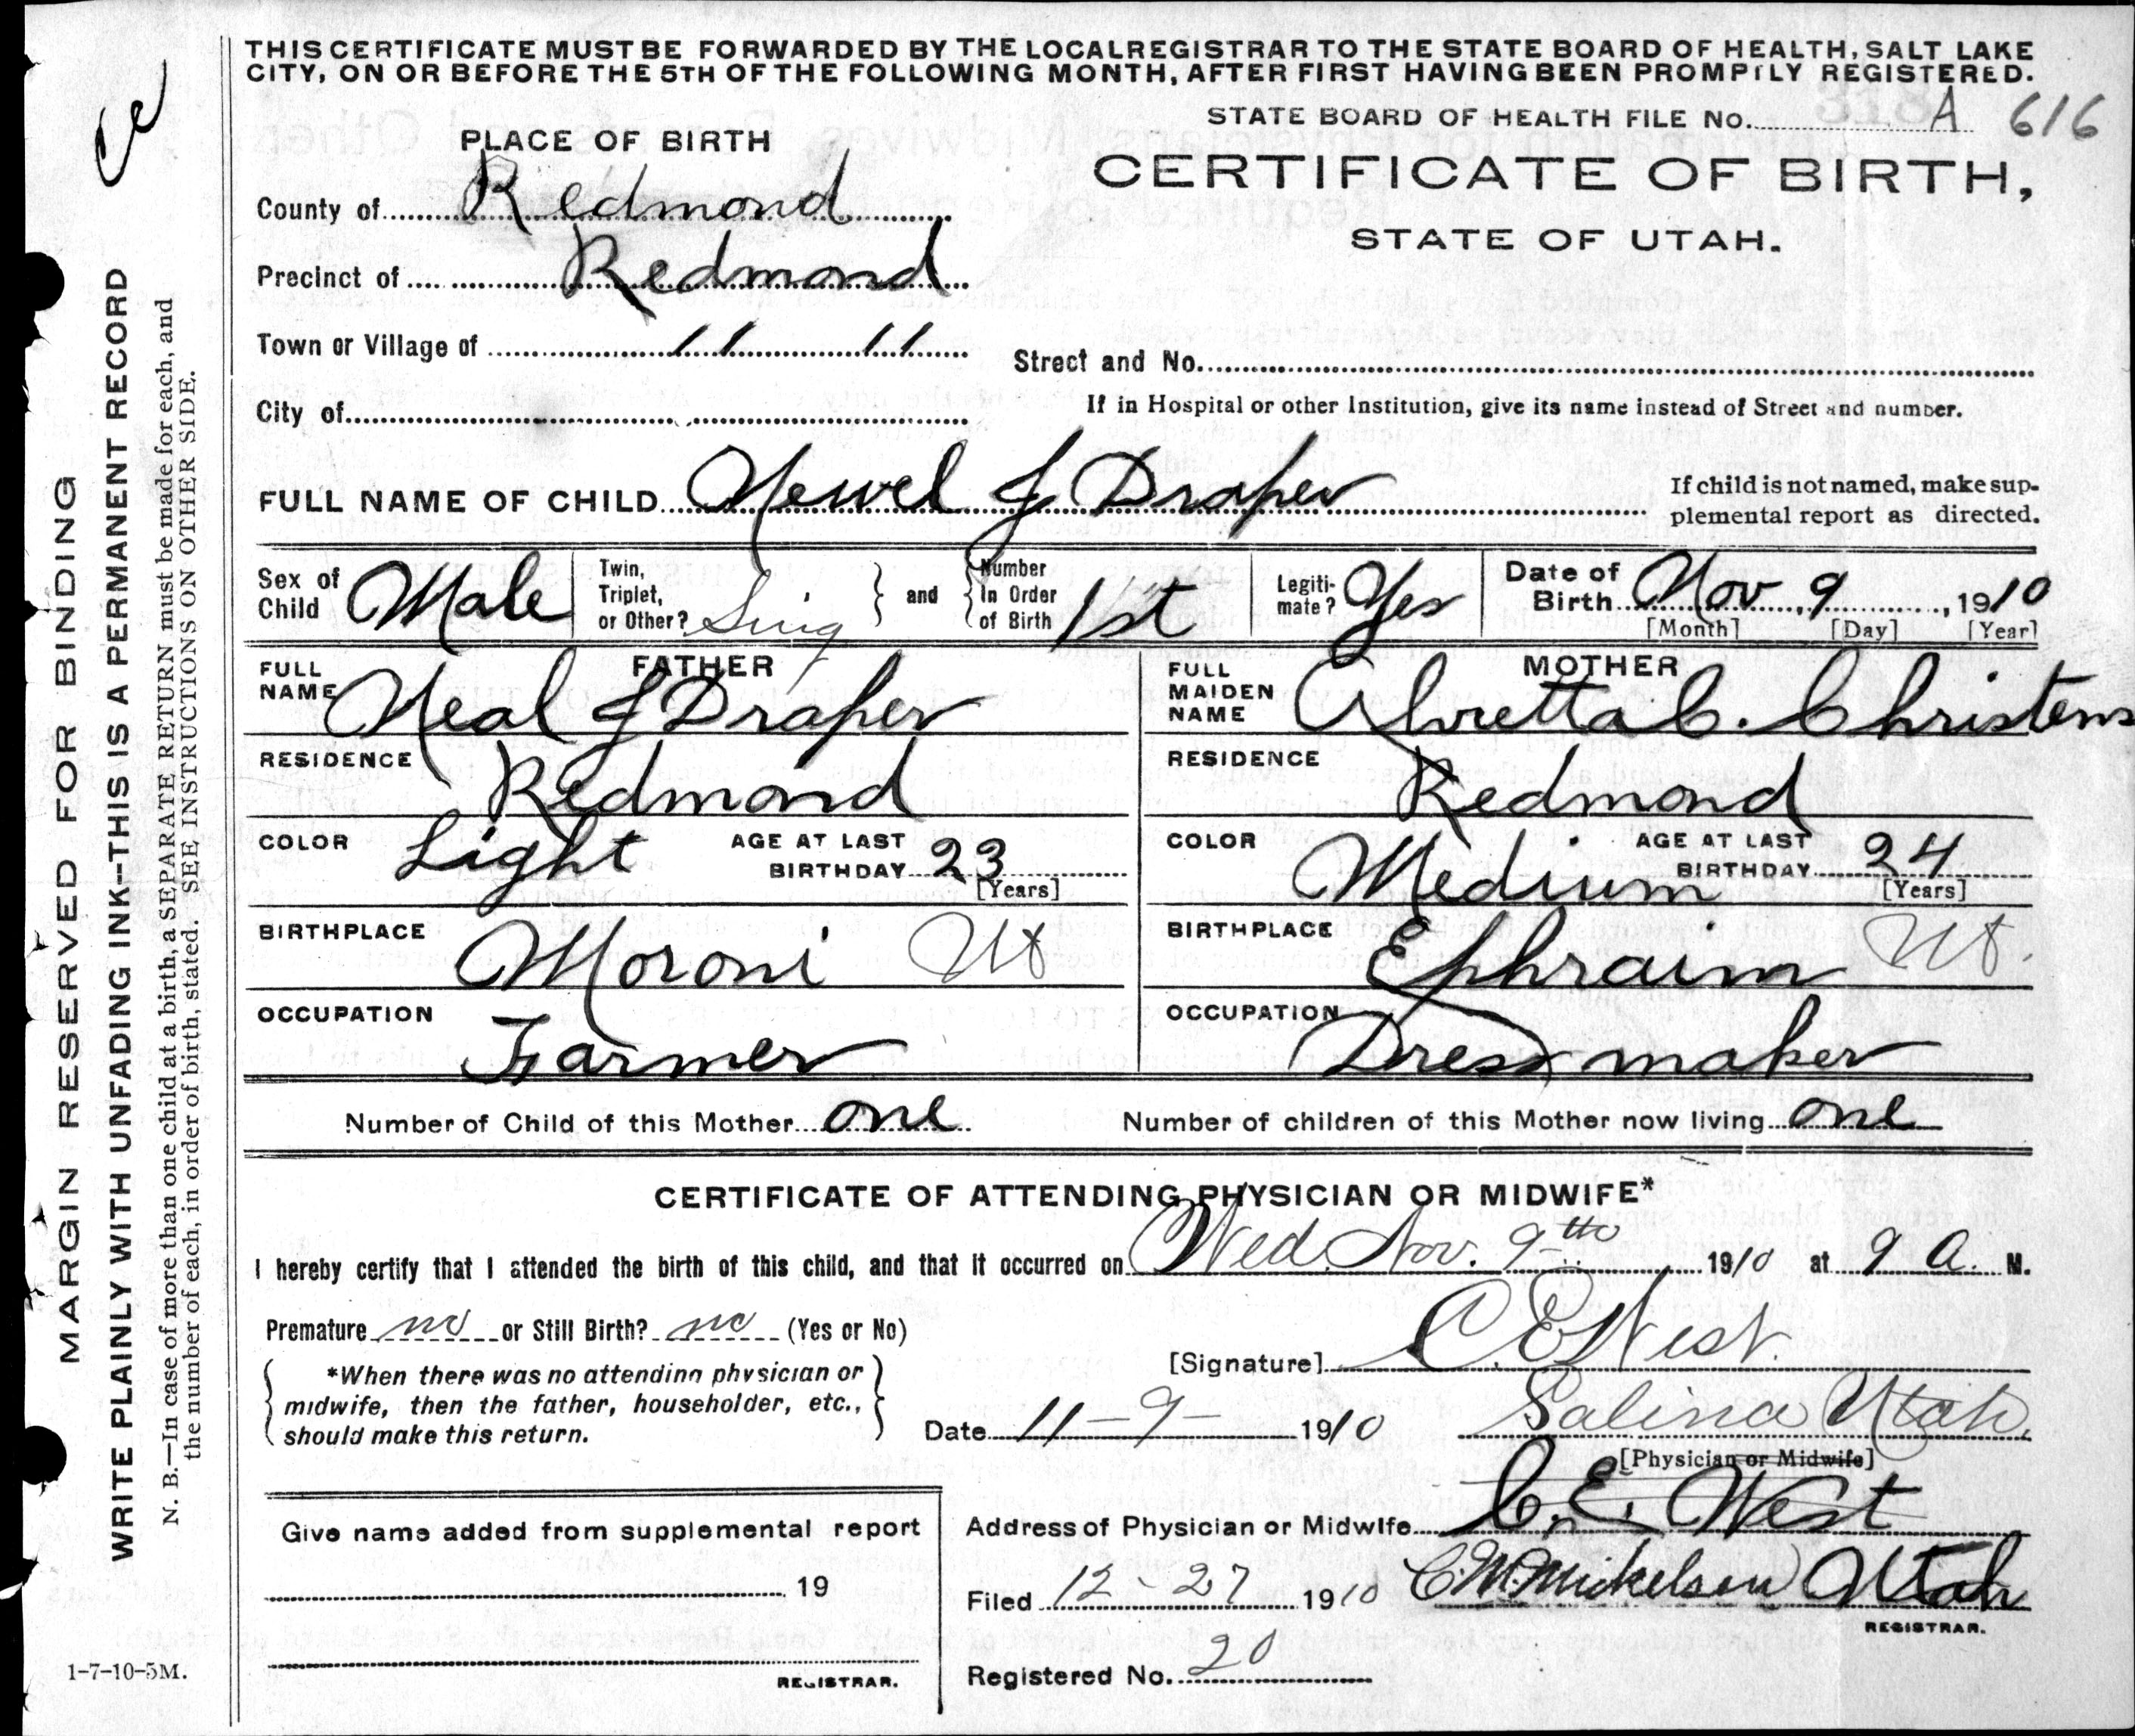 THIS CERTIFICATE MUST BE FORWARDED BY THE LOCAL REGISTRAR TO THE STATE BOARD OF HEALTH, SALT LAKE
CITY, ON OR BEFORE THE 5TH OF THE FOLLOWING MONTH, AFTER FIRST HAVING BEEN PROMPTLY REGISTERED.
STATE BOARD OF HEALTH FILE No. A 616
PLACE OF BIRTH
CERTIFICATE OF BIRTH,
STATE OF UTAH.
County of Redmond
Precinct of Redmond
Town or Village of " "
Street and No.
City of
If in Hospital or other Institution, give its name instead of Street and number.
FULL NAME OF CHILD Newel J Draper
If child is not named, make sup-
plemental report as directed.
Sex of Child Male
Twin, Triplet, or Other? Sing
and Number In Order of Birth 1st
Legiti-mate? Yes
Date of Birth Nov 9, 1910
[Month] [Day] [Year]
FATHER
FULL NAME Neal J Draper
RESIDENCE Redmond
COLOR Light
AGE AT LAST BIRTHDAY 23 [Years]
BIRTHPLACE Moroni Ut
OCCUPATION Farmer
MOTHER
FULL MAIDEN NAME Alvretta C. Christens
RESIDENCE Redmond
COLOR Medium
AGE AT LAST BIRTHDAY 24 [Years]
BIRTHPLACE Ephraim Ut.
OCCUPATION Dress maker
Number of Child of this Mother one
Number of children of this Mother now living one
CERTIFICATE OF ATTENDING PHYSICIAN OR MIDWIFE*
I hereby certify that I attended the birth of this child, and that it occurred on Wed. Nov. 9th 1910 at 9 A. M.
Premature no or Still Birth? no (Yes or No)
*When there was no attending physician or
midwife, then the father, householder, etc.,
should make this return.
[Signature] C. E. West.
Date 11-9- 1910
Salina Utah.
[Physician or Midwife]
Give name added from supplemental report
19
REGISTRAR.
Address of Physician or Midwife C. E. West
Filed 12-27 1910 C. M. Mickelsen Utah
REGISTRAR.
Registered No. 20
MARGIN RESERVED FOR BINDING
WRITE PLAINLY WITH UNFADING INK--THIS IS A PERMANENT RECORD
N. B.—In case of more than one child at a birth, a SEPARATE RETURN must be made for each, and
the number of each, in order of birth, stated. SEE INSTRUCTIONS ON OTHER SIDE.
1-7-10-5M.